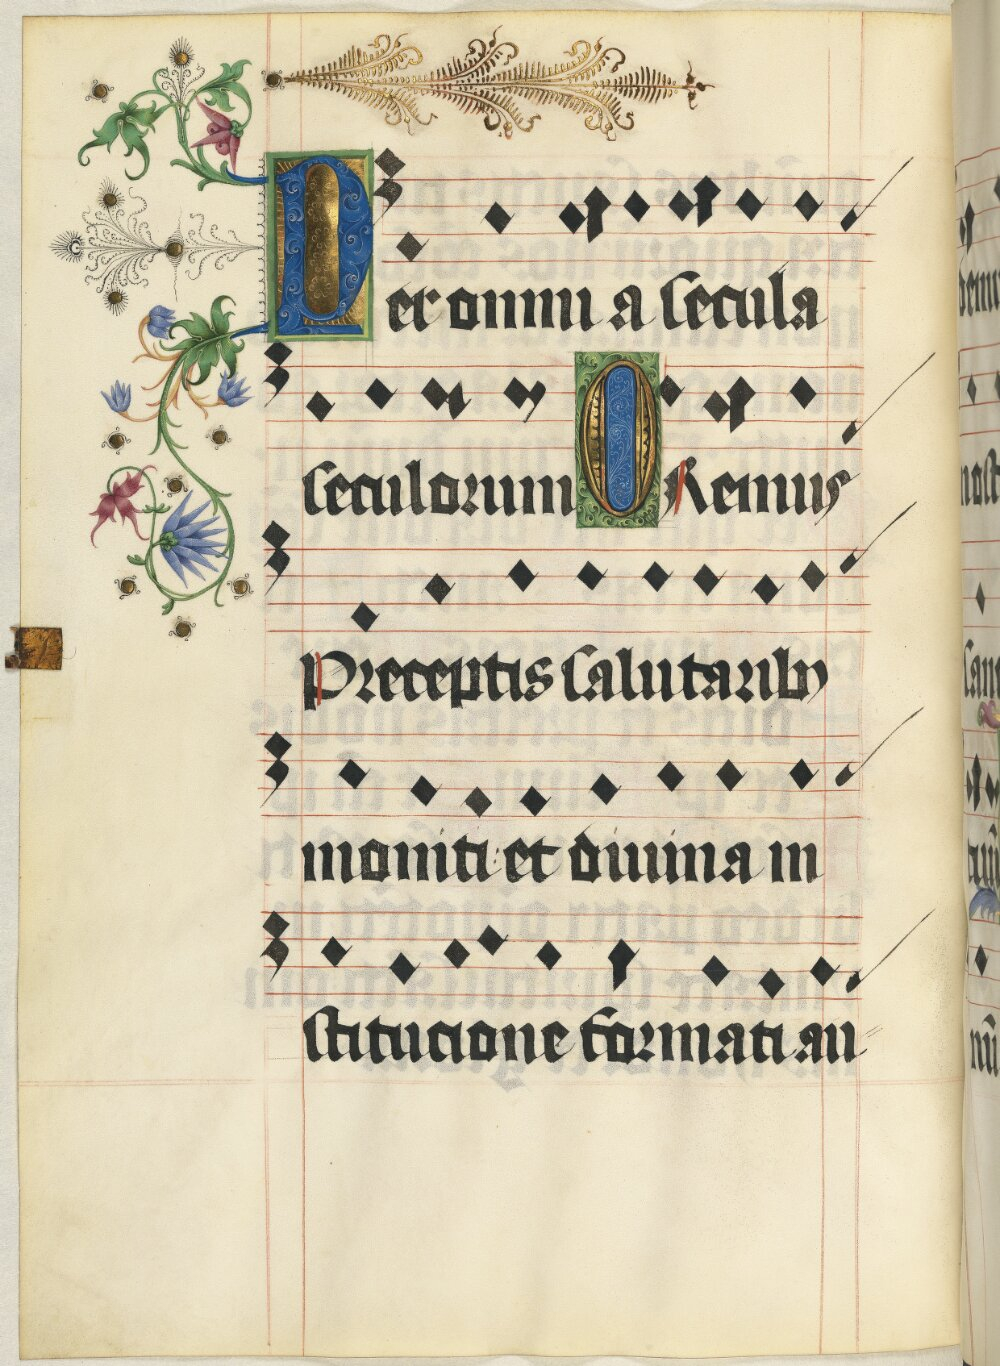 Per omni a secula
seculorum ORemus
Preceptis salutarib9
moniti: et diuina in
stitutione formati au